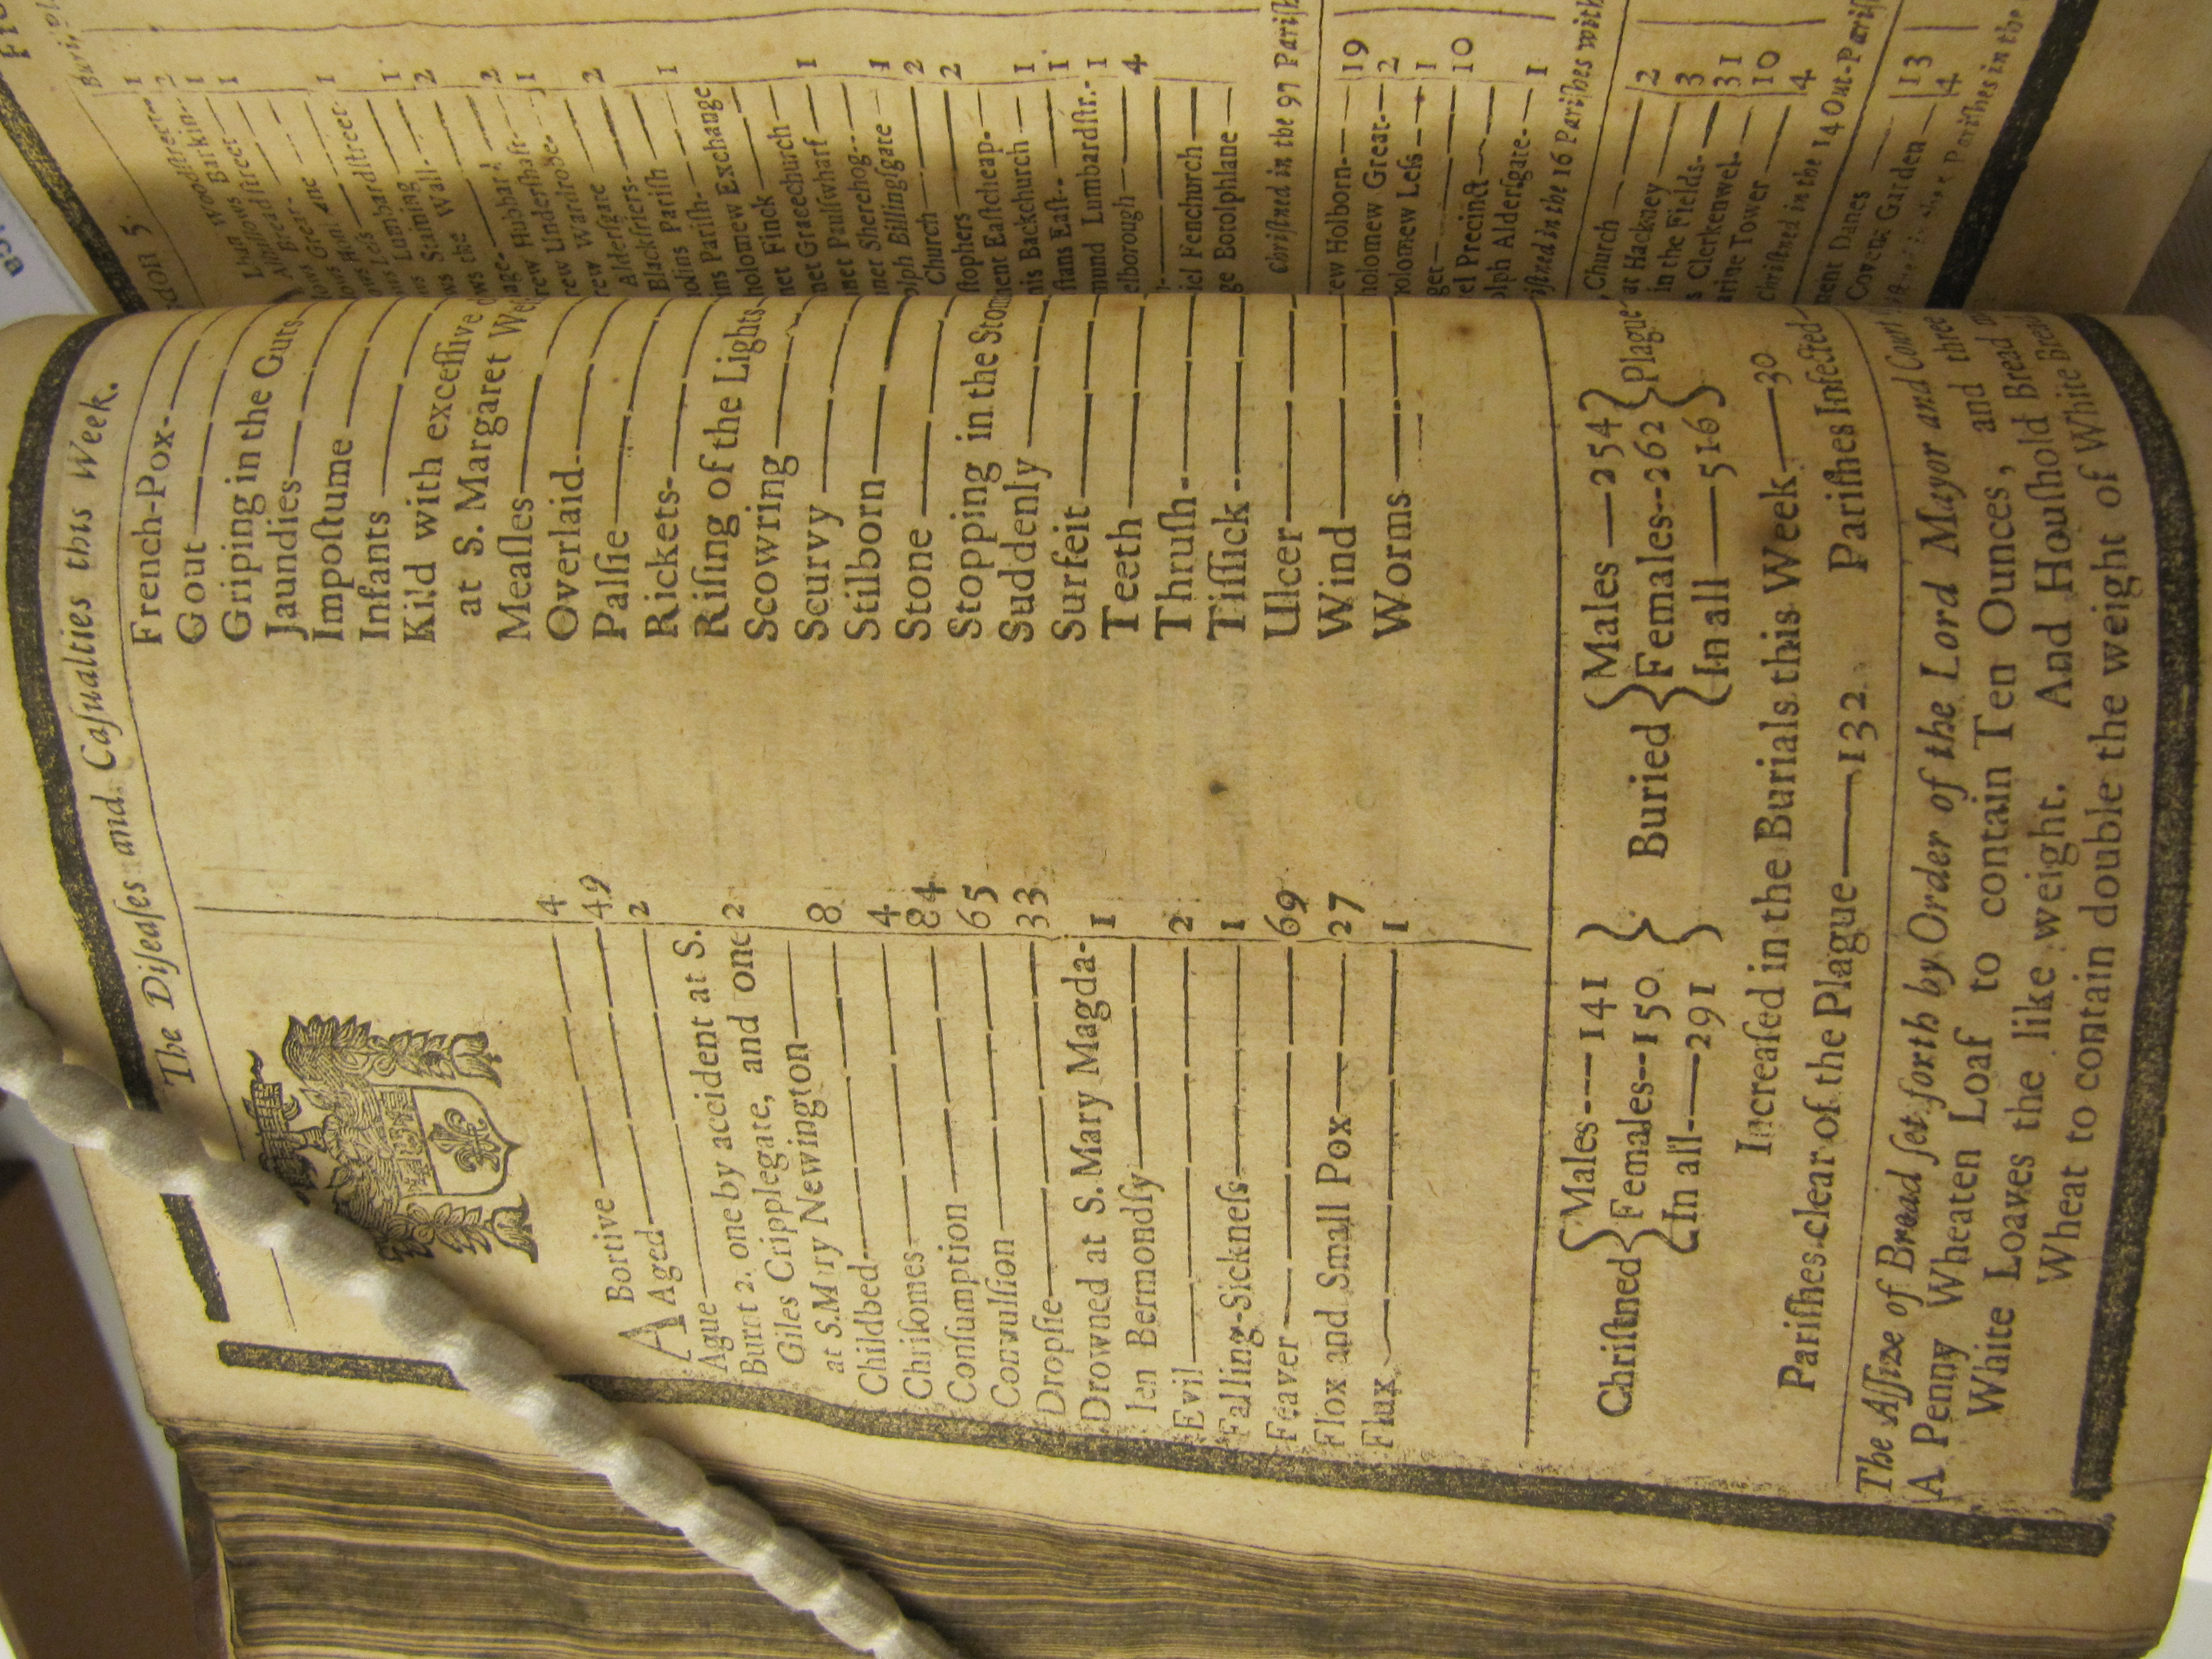 The Diſeaſes and Caſualties this Week.
A Bortive 4
Aged 49
Ague 2
Burnt 2. one by accident at S.
Giles Cripplegate, and one 2
at S. Mary Newington
Childbed 8
Chriſomes 4
Conſumption 84
Convulſion 65
Dropſie 33
Drowned at S. Mary Magda- 1
len Bermondſy
Evil 2
Falling-Sickneſs 1
Feaver 69
Flox and Small Pox 27
Flux 1
French-Pox
Gout
Griping in the Guts
Jaundies
Impoſtume
Infants
Kild with exceſſive
at S. Margaret
Meaſles
Overlaid
Palſie
Rickets
Riſing of the Lights
Scowring
Scurvy
Stilborn
Stone
Stopping in the
Suddenly
Surfeit
Teeth
Thruſh
Tiſſick
Ulcer
Wind
Worms
Chriſtned { Males 141 Females 150 In all 291 } Buried { Males 254 Females 262 In all 516 } Plague
Increaſed in the Burials this Week 30
Pariſhes clear of the Plague 132 Pariſhes Infected
The Aſſize of Bread ſet forth by Order of the Lord Mayor and Court
A Penny Wheaten Loaf to contain Ten Ounces, and three
White Loaves the like weight. And Houſhold Bread
Wheat to contain double the weight of White Bread
Woodſtreet 1
Barkin 2
Breadſtreet 1
Great 1
Lumbardſtreet 1
Staining 1
the Wall 2
Hubbard 2
Underſhaft 1
Wardrobe 2
Alderſgate
Blackfriers
Pariſh 1
Pariſh
holomew Exchange
net Finck
net Gracechurch 1
net Paulſwharf
net Sherehog 1
olph Billingſgate 2
Church 2
ſtophers
ment Eaſtcheap 1
nis Backchurch 1
ſtans Eaſt 1
mund Lumbardſtr. 4
elborough
iel Fenchurch
ge Botolphlane
Chriſtned in the 97 Pariſh
rew Holborn 19
holomew Great 2
holomew Leſs 1
get 10
el Precinct
olph Alderſgate 1
iſtned in the 16 Pariſhes with
Church 2
at Hackney 3
in the Fields 31
s Clerkenwel 10
arine Tower 4
Chriſtned in the 14 Out-Pariſ
ment Danes 13
Covent Garden 4
Pariſhes in the